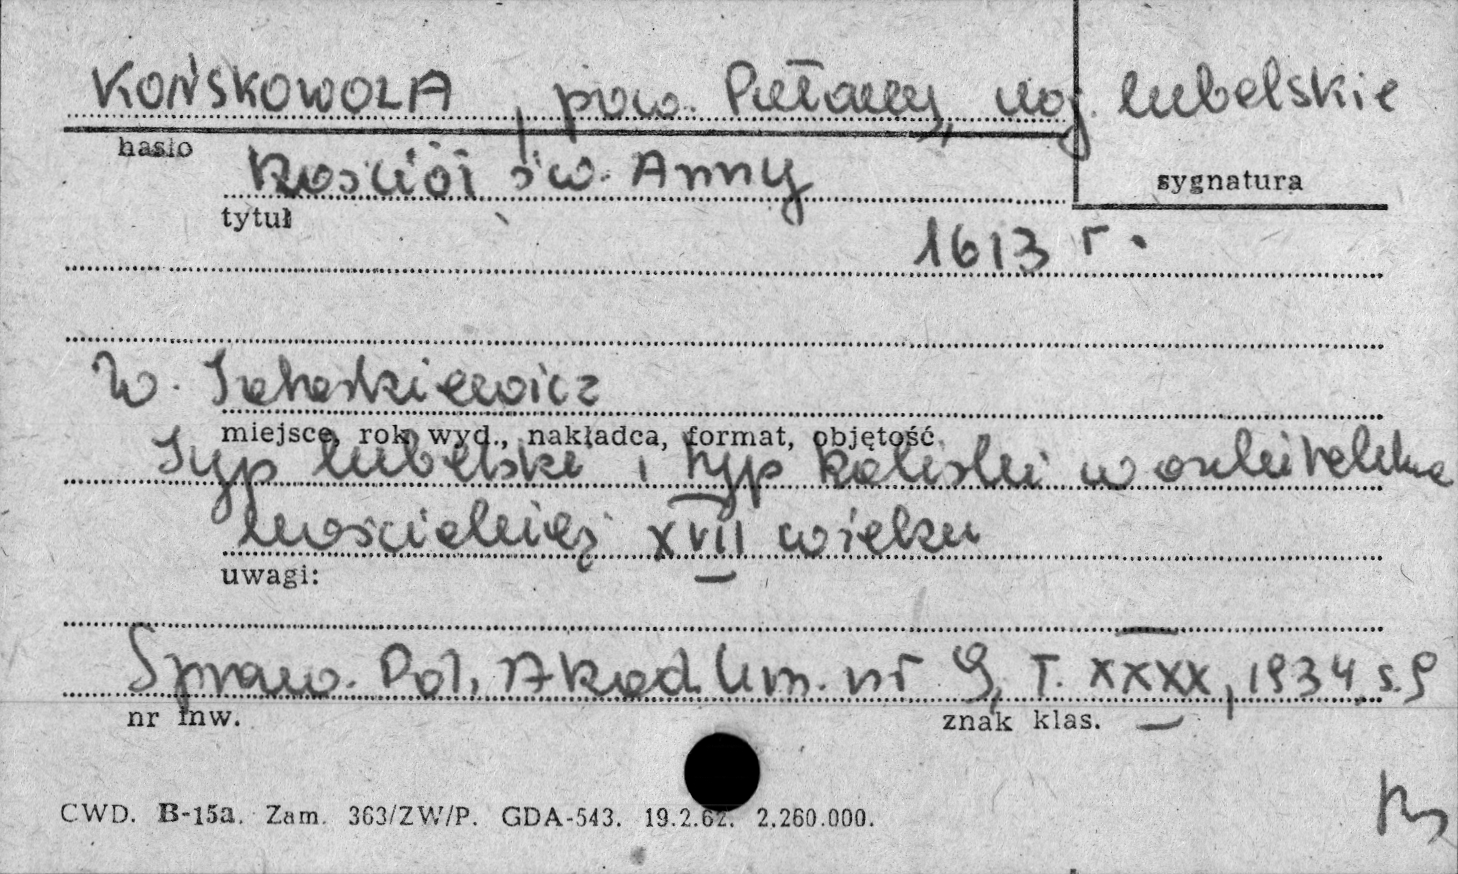 KOŃSKOWOLA, pow. Puławy, woj. lubelskie
hasło
Kościół św. Anny
sygnatura
tytuł
1613 r.
W. Tatarkiewicz
miejsce, rok wyd., nakładca, format, objętość
Typ lubelski i typ kaliski w architekturze
kościelnej XVII wieku
uwagi:
Spraw. Pol. Akad. Um. nr 9, T. XXXX, 1934, s. 9
nr inw.
znak klas.
CWD. B-15a. Zam. 363/ZW/P. GDA-543. 19.2.62. 2.260.000.